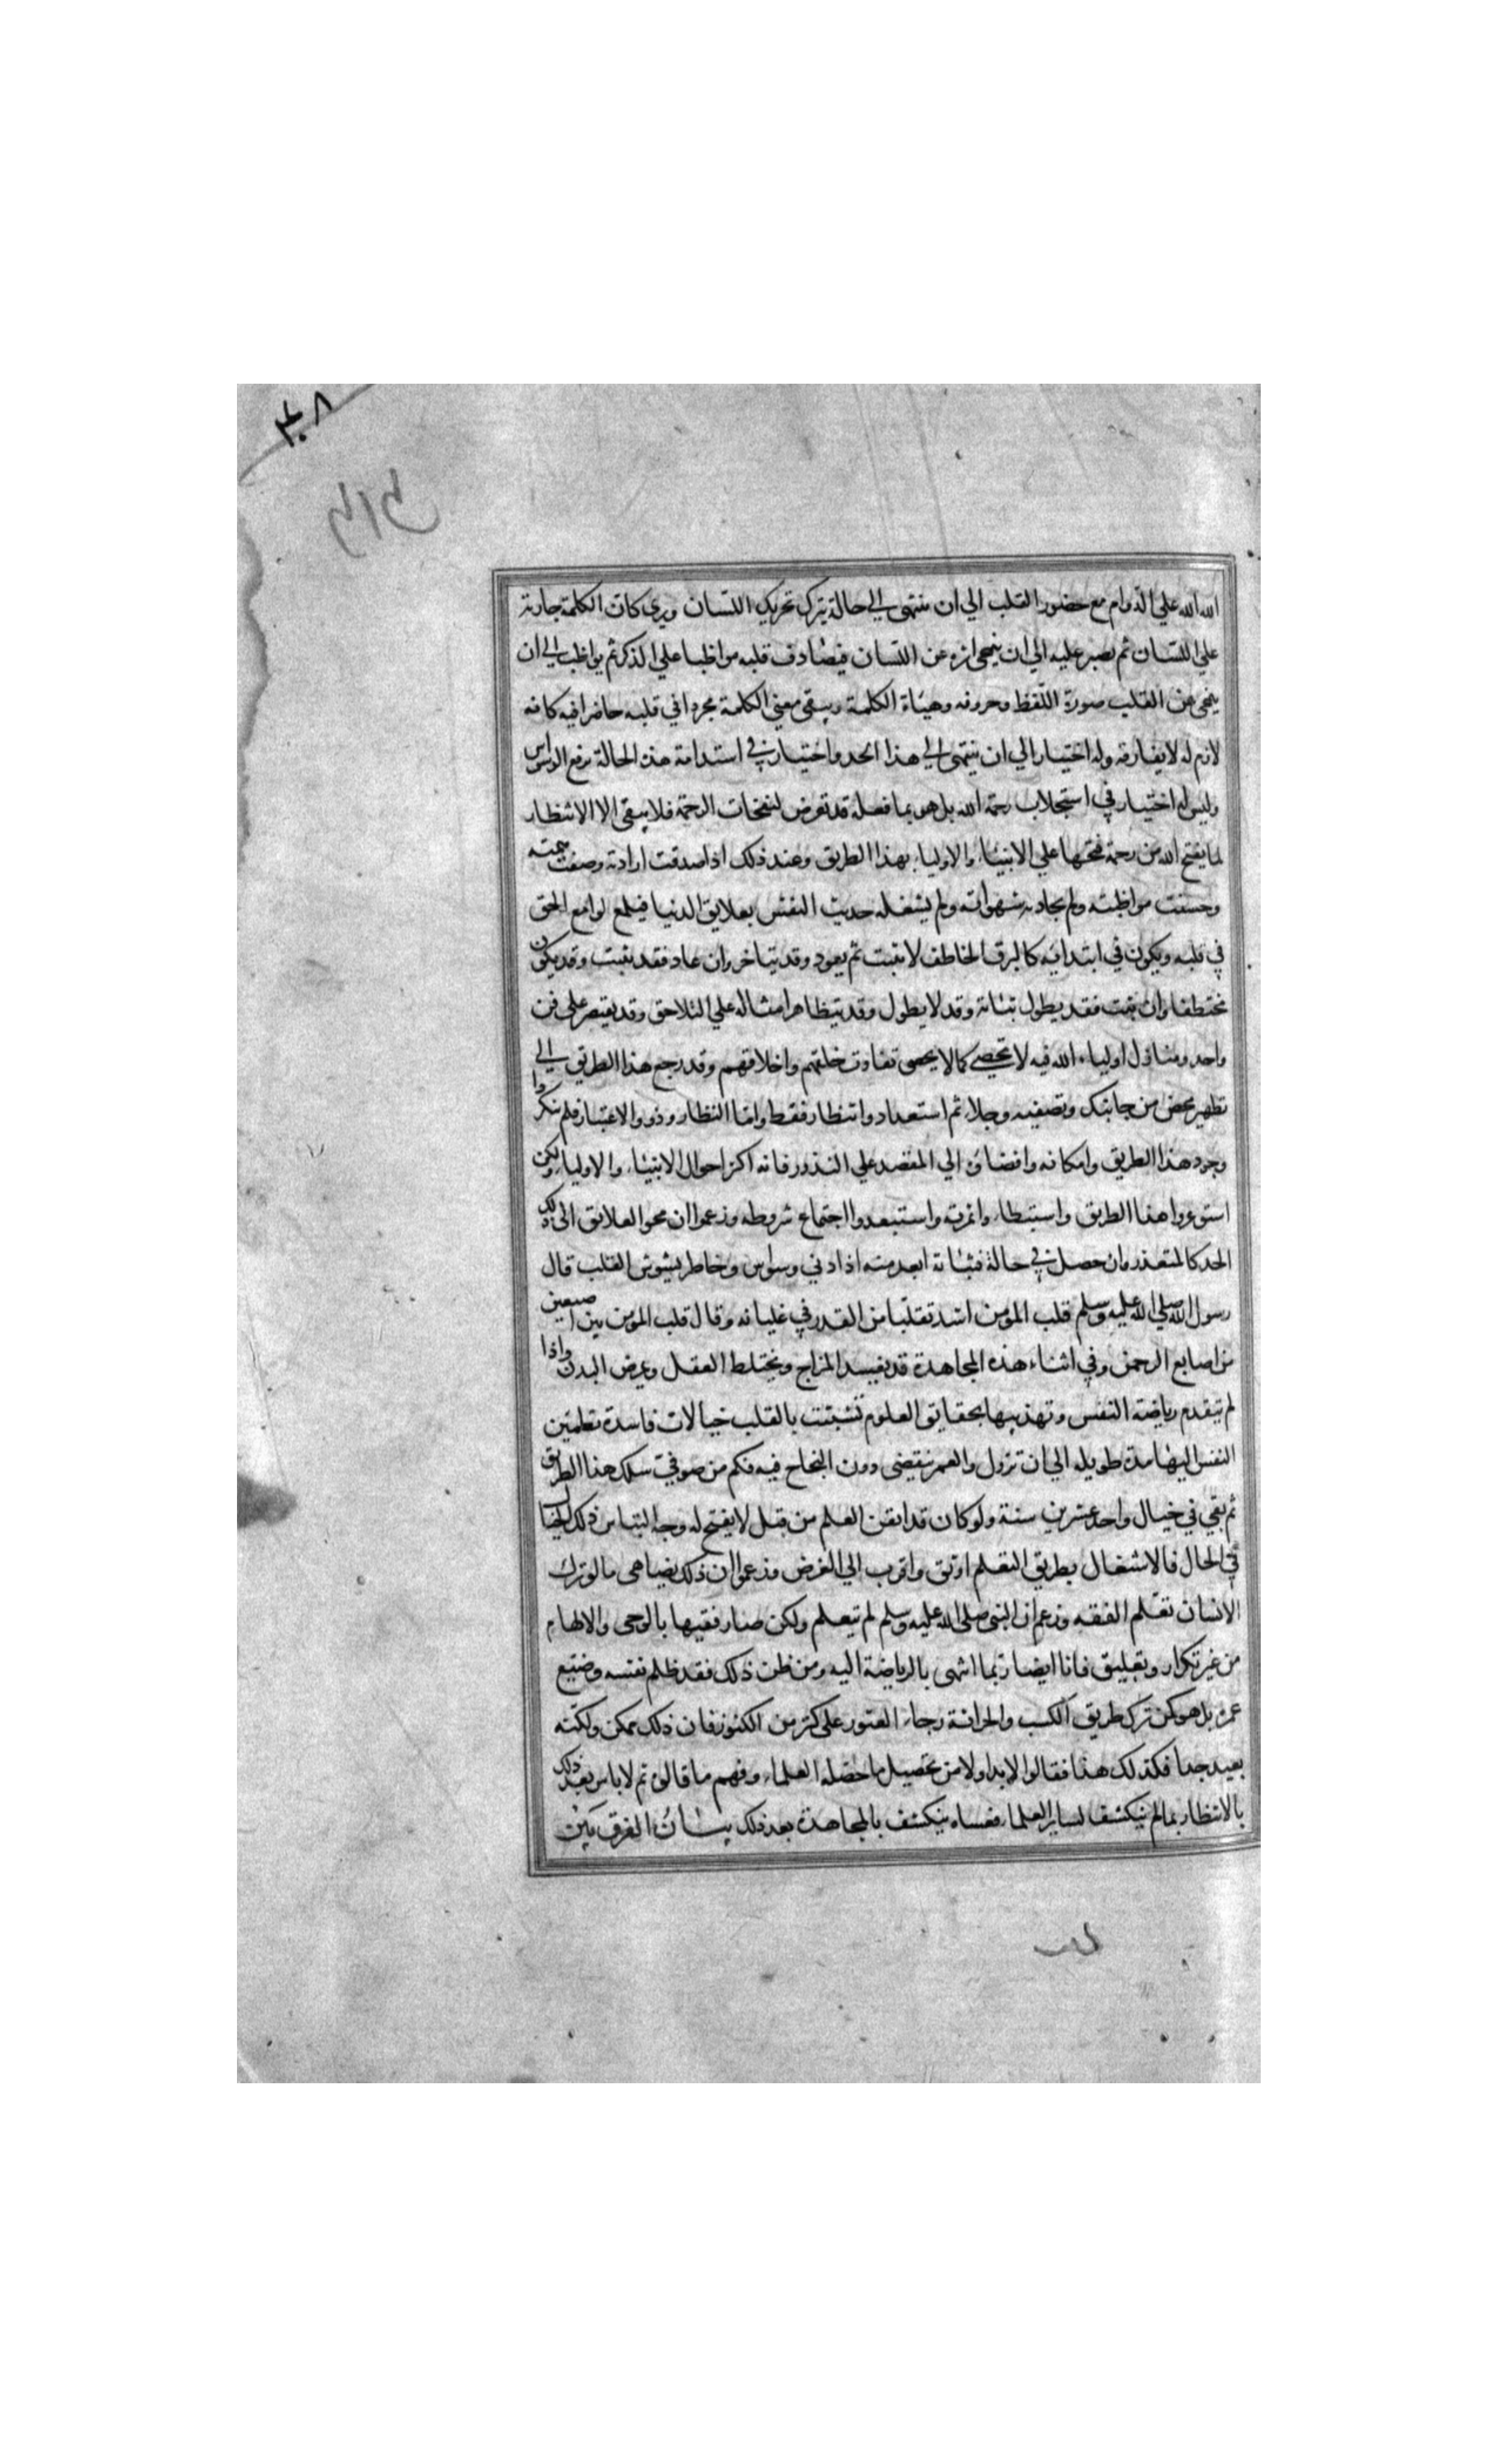 الله الله علي الدوام مع حضور القلب الي ان ينتهي الي حالة يترك تحريك اللسان ويري كان الكلمة جارية
علي اللسان ثم يصبر عليه الي ان ينمحي اثره عن اللسان فيصادف قلبه مواظبا علي الذكر ثم يواظب الي ان
ينمحي عن القلب صورة اللفظ وحروفه وهياة الكلمة ويبقي معني الكلمة مجردا في قلبه حاضرا فيه كانه
لازم له لا يفارقه وله اختيار الي ان ينتهي الي هذا الحد واختيار في استدامة هذه الحالة برفع الوسواس
وليس له اختيار في استجلاب رحمة الله بل هو بما فعله قد تعرض لنفحات الرحمة فلا يبقي الا الانتظار
لما يفتح الله من رحمة فتحها علي الانبياء والاولياء بهذا الطريق وعند ذلك اذا صدقت ارادته وصفت همته
وحسنت مواظبته ولم يجاذبه شهواته ولم يشغله حديث النفس بعلايق الدنيا فيلمع لوامع الحق
في قلبه ويكون في ابتدايه كالبرق الخاطف لا يثبت ثم يعود وقد يتاخر وان عاد فقد يثبت وقد يكون
مختطفا وان ثبت فقد يطول ثباته وقد لا يطول وقد يتظاهر امثاله علي التلاحق وقد يقتصر علي فن
واحد ومنازل اولياء الله فيه لا تحصي كما لا يحصي تفاوت خلقهم واخلاقهم وقد رجع هذا الطريق الي
تطهير محض من جانبك وتصفيه وجلاء ثم استعداد وانتظار فقط واما النظار وذوو الاعتبار فلم ينكروا
وجود هذا الطريق وامكانه وافضاؤه الي المقصد علي الندور فانه اكثر احوال الانبياء والاولياء ولكن
استوعروا هذا الطريق واستبطاء وا ثمرته واستبعدوا اجتماع شروطه وزعموا ان محو العلائق الي ذلك
الحد كالمتعذر وان حصل في حالة فثباته ابعد منه اذ ادني وسواس وخاطر يشوش القلب قال
رسول الله صلي الله عليه وسلم قلب المؤمن اشد تقلبا من القدر في غليانه وقال قلب المؤمن بين اصبعين
من اصابع الرحمن وفي اثناء هذه المجاهدة قد يفسد المزاج ويختلط العقل ويمرض البدن واذا
لم تتقدم رياضة النفس وتهذيبها بحقايق العلوم تشبثت بالقلب خيالات فاسدة تطمئن
النفس اليها مدة طويله الي ان تزول والعمر ينقضي دون النجاح فيه فكم من صوفي سلك هذا الطريق
ثم بقي في خيال واحد عشرين سنة ولو كان قد اتقن العلم من قبل لا يفتح له وجه التباس ذلك الخيال
في الحال فالاشتغال بطريق التعلم اوثق واقرب الي الغرض وزعموا ان ذلك يضاهي ما لو ترك
الانسان تعلم الفقه وزعم ان النبي صلي الله عليه وسلم لم يتعلم ولكن صار فقيها بالوحي والالهام
من غير تكرار وتعليق فانا ايضا ربما انتهي بالرياضة اليه ومن ظن ذلك فقد ظلم نفسه وضيع
عمره بل هو كمن ترك طريق الكسب والحراثة رجاء العثور علي كنز من الكنوز فان ذلك ممكن ولكنه
بعيد جدا فكذلك هذا فقالوا لا بد اولا من تحصيل ما حصله العلماء وفهم ما قالوه ثم لا باس بعد ذلك
بالانتظار بما لم ينكشف لساير العلماء فعساه ينكشف بالمجاهدة بعد ذلك بيان الفرق بين